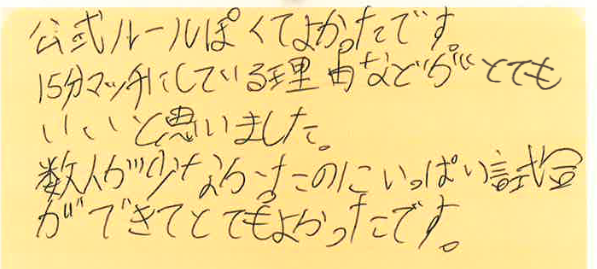 公式ルールぽくてよかったです
15分マッチにしている理由などがとても
いいと思いました。
数人が少なかったのにいっぱい試合
ができてとてもよかったです。